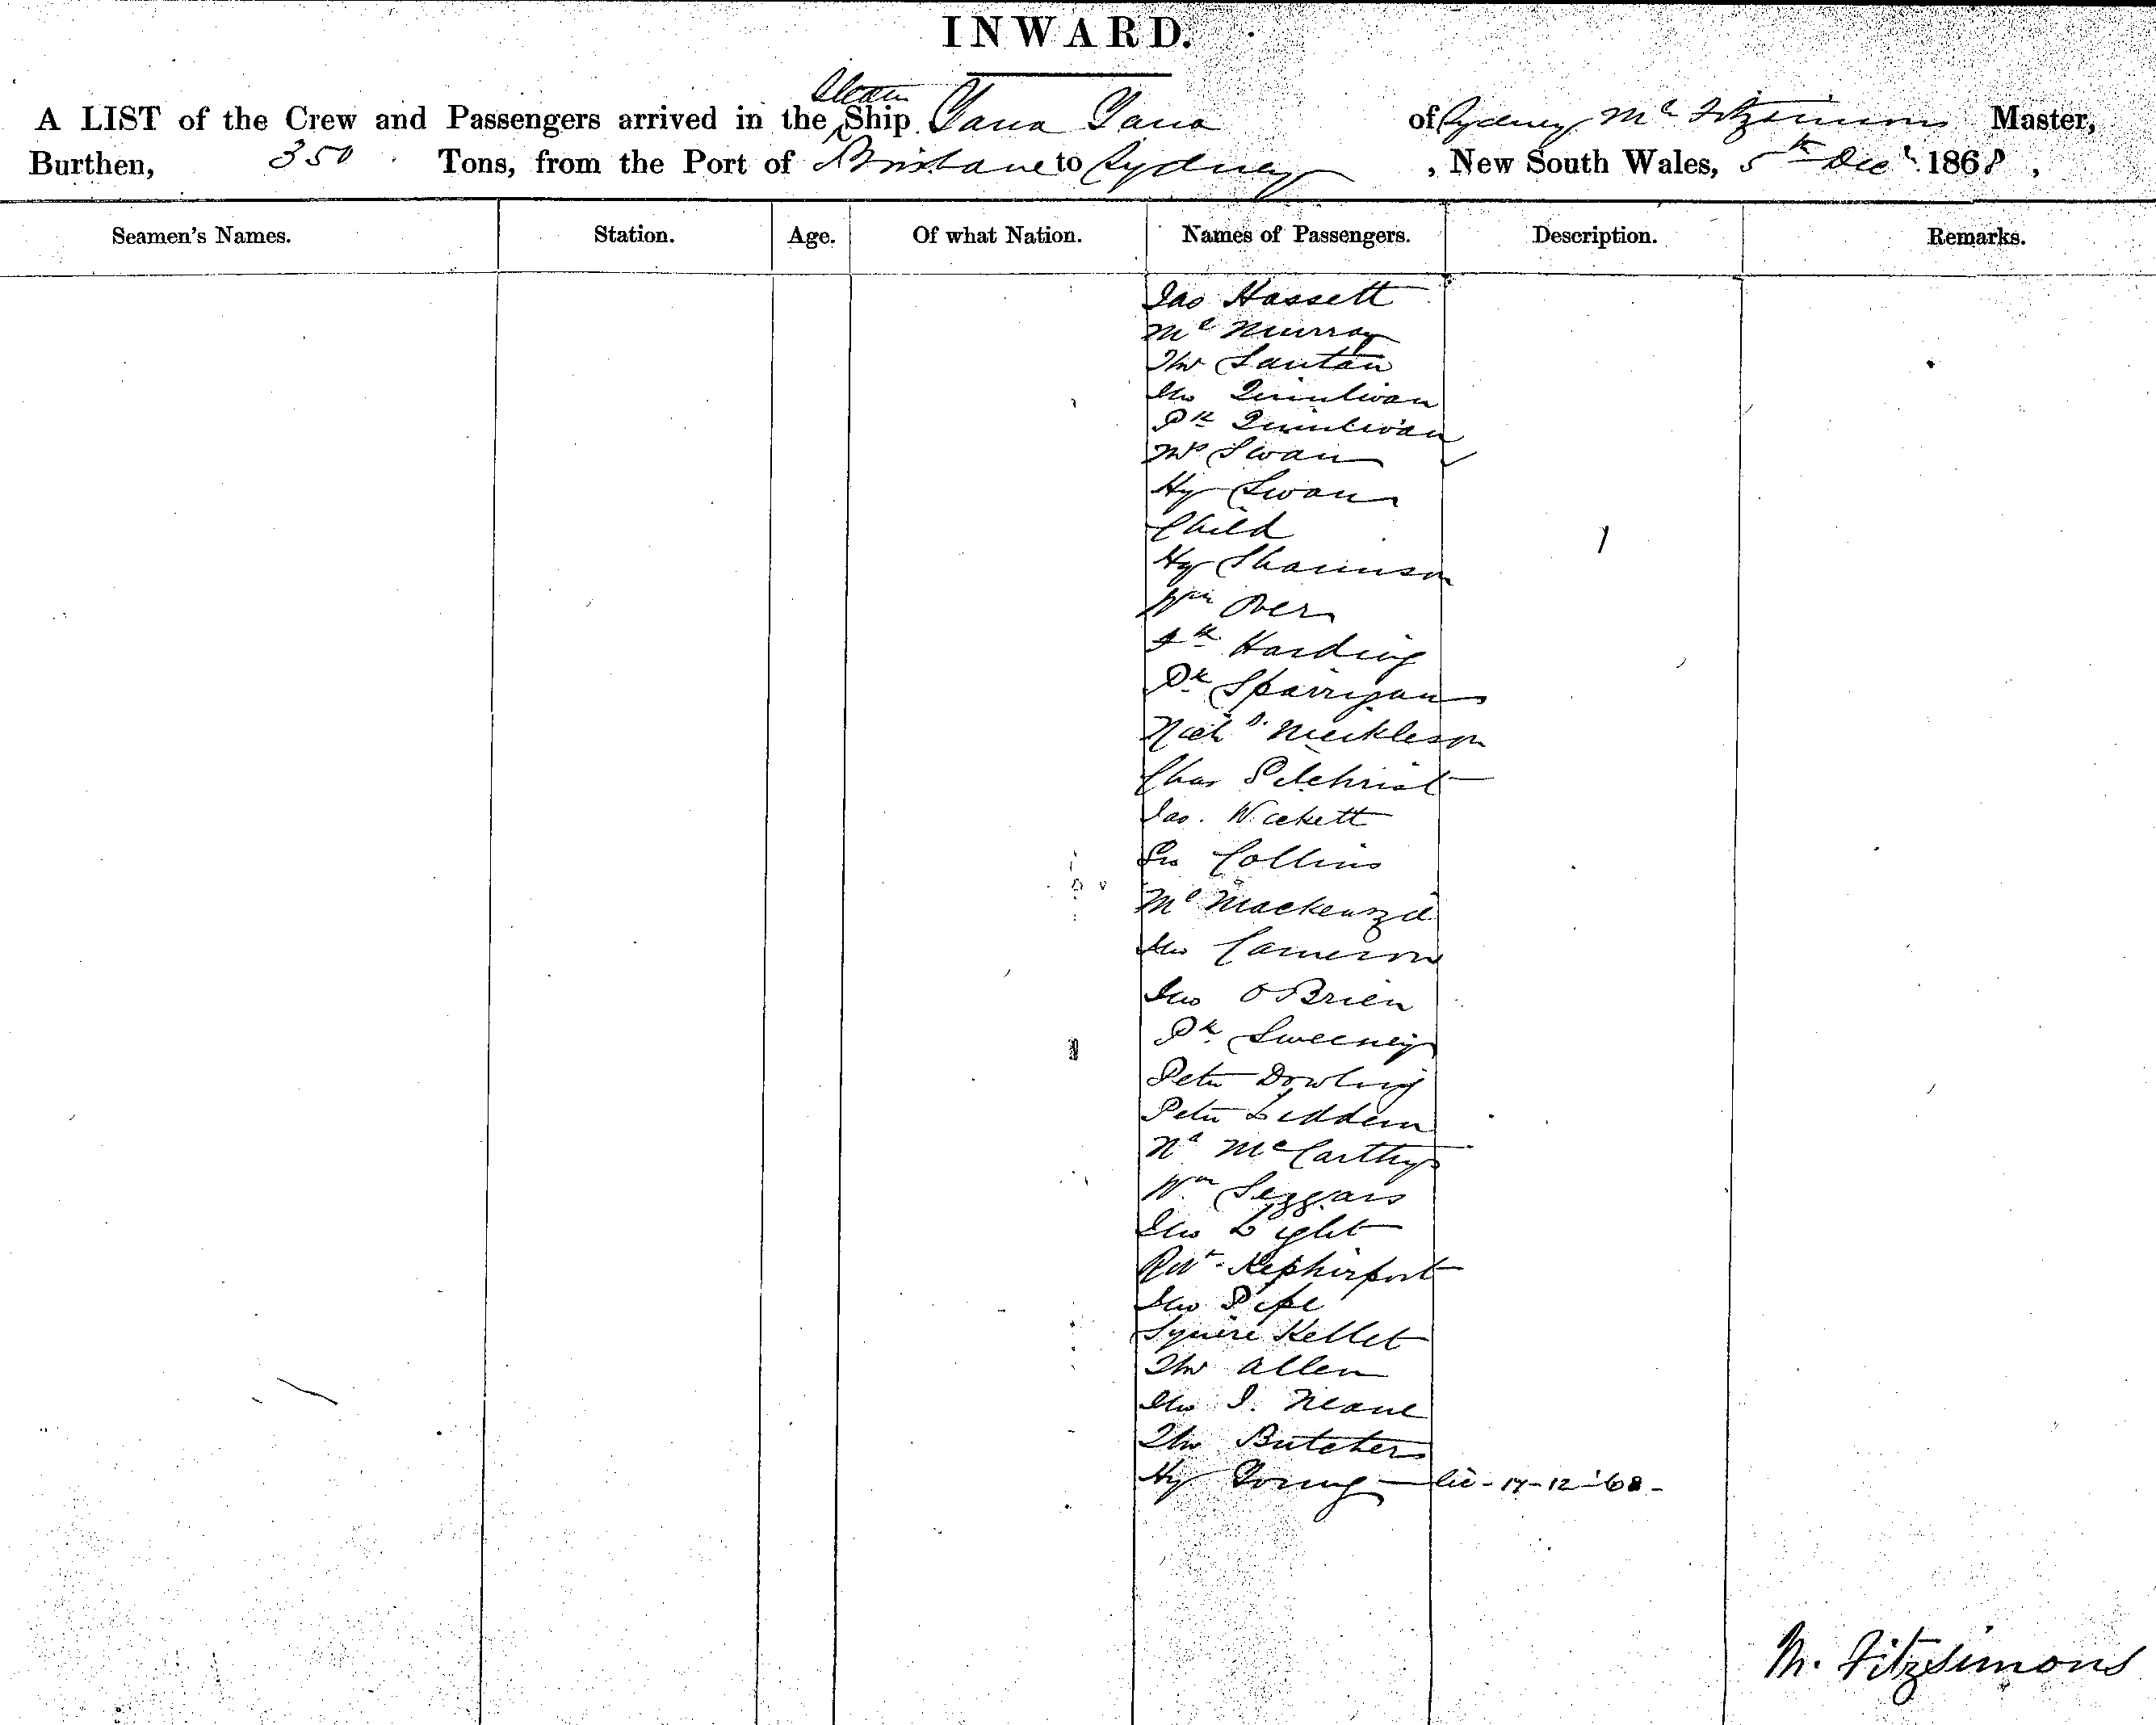 INWARD.
A LIST of the Crew and Passengers arrived in the Steam Ship Yarra Yarra of Sydney Ml Fitzsimmons Master,
Burthen, 350 Tons, from the Port of Brisbane to Sydney, New South Wales, 5th Decr 1868,
Seamen's Names. Station. Age. Of what Nation. Names of Passengers. Description. Remarks.
Jas Hassett
Ml Murray
Thos
Jno Quinlivan
Pk Quinlivan
Mrs Swan
Hy Swan
Child 1
Hy
Wm Over
Fk Harding
Pk
Nichs
Chas Gilchrist
Jas. Wickett
Collins
Ml Mackenzie
Jno Cameron
Jno O Brien
Pk Sweeney
Peter Dowling
Peter
McCarthy
Wm Seggars
Jno Light
Robt
Jno Pipe
Squire Kellet
Thos Allen
Jno J. Neane
Thos Butchers
Hy Young 17-12-'68-
M. Fitzsimons